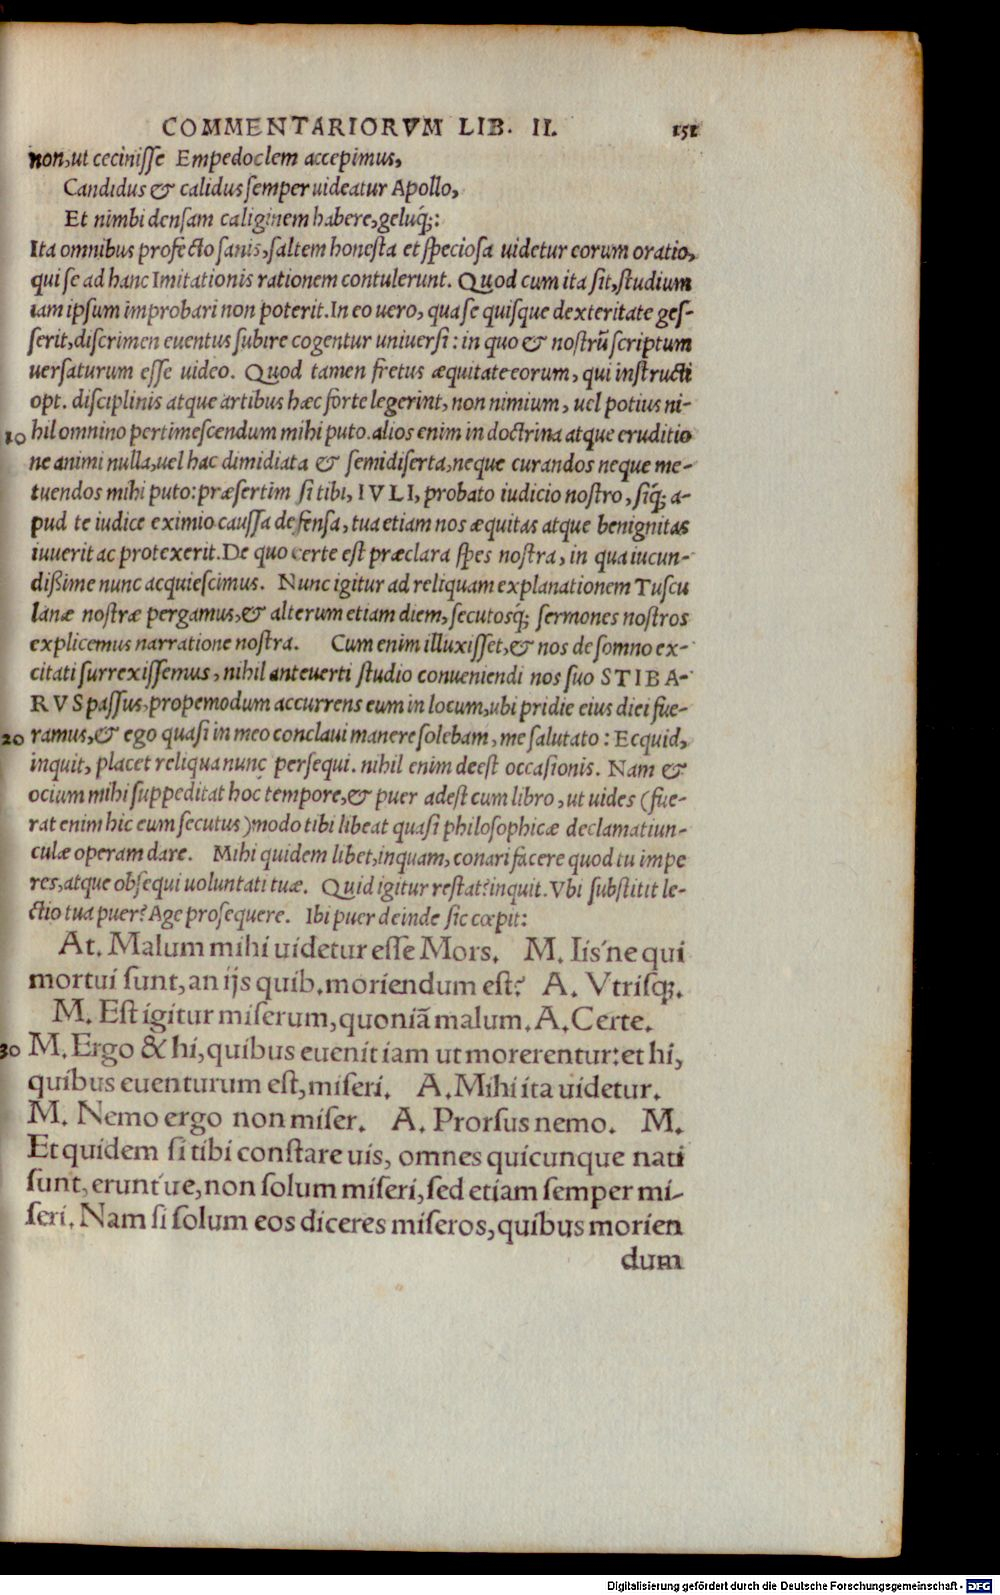 COMMENTARIORVM LIB. II. 151
non, ut cecinisse Empedoclem accepimus,
Candidus & calidus semper uideatur Apollo,
Et nimbi densam caliginem habere, geluq́;:
Ita omnibus profecto sanis, saltem honesta et speciosa uidetur eorum oratio,
qui se ad hanc Imitationis rationem contulerunt. Quod cum ita sit, studium
iam ipsum improbari non poterit. In eo uero, qua se quisque dexteritate ges-
serit, discrimen euentus subire cogentur uniuersi: in quo & nostrũ scriptum
uersaturum esse uideo. Quod tamen fretus æquitate eorum, qui instructi
opt. disciplinis atque artibus hæc forte legerint, non nimium, uel potius ni-
10 hil omnino pertimescendum mihi puto. alios enim in doctrina atque eruditio
ne animi nulla, uel hac dimidiata & semidiserta, neque curandos neque me-
tuendos mihi puto: præsertim si tibi, IVLI, probato iudicio nostro, siq́; a-
pud te iudice eximio caussa defensa, tua etiam nos æquitas atque benignitas
iuuerit ac protexerit. De quo certe est præclara spes nostra, in qua iucun-
dißime nunc acquiescimus. Nunc igitur ad reliquam explanationem Tuscu
lanæ nostræ pergamus, & alterum etiam diem, secutosq́; sermones nostros
explicemus narratione nostra. Cum enim illuxisset, & nos de somno ex-
citati surrexissemus, nihil anteuerti studio conueniendi nos suo STIBA-
RVS passus, propemodum accurrens eum in locum, ubi pridie eius diei fue-
20 ramus, & ego quasi in meo conclaui manere solebam, me salutato: Ecquid,
inquit, placet reliqua nunc persequi. nihil enim deest occasionis. Nam &
ocium mihi suppeditat hoc tempore, & puer adest cum libro, ut uides (fue-
rat enim hic eum secutus) modo tibi libeat quasi philosophicæ declamatiun-
culæ operam dare. Mihi quidem libet, inquam, conari facere quod tu impe
res, atque obsequi uoluntati tuæ. Quid igitur restat? inquit. Vbi substitit le-
ctio tua puer? Age prosequere. Ibi puer deinde sic cœpit:
At. Malum mihi uidetur esse Mors. M. Iis'ne qui
mortui sunt, an ijs quib. moriendum est? A. Vtrisq;.
M. Est igitur miserum, quoniã malum. A. Certe.
30 M. Ergo & hi, quibus euenit iam ut morerentur: et hi,
quibus euenturum est, miseri. A. Mihi ita uidetur.
M. Nemo ergo non miser. A. Prorsus nemo. M.
Et quidem si tibi constare uis, omnes quicunque nati
sunt, erunt'ue, non solum miseri, sed etiam semper mi-
seri. Nam si solum eos diceres miseros, quibus morien
dum
Digitalisierung gefördert durch die Deutsche Forschungsgemeinschaft - DFG